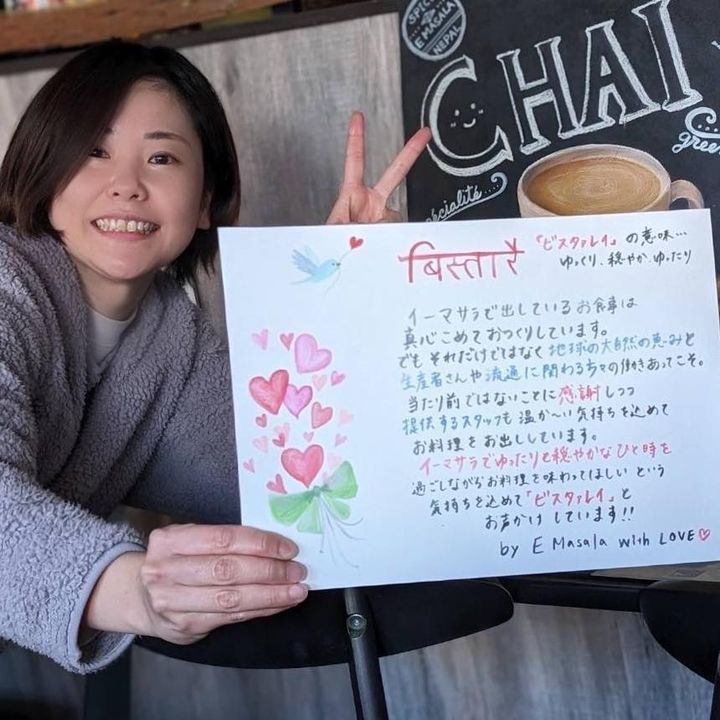 SPICE
E MASALA
NEPAL
CHAI
spécialité
gree
बिस्तारै 「ビスタァレイ」の意味…
ゆっくり、穏やか、ゆったり
イーマサラで出しているお食事は
真心こめておつくりしています。
でもそれだけではなく地球の大自然の恵みと
生産者さんや流通に関わる方々の働きあってこそ。
当たり前ではないことに感謝しつつ
提供するスタッフも温か〜い気持ちを込めて
お料理をお出ししています。
イーマサラでゆったりと穏やかなひと時を
過ごしながらお料理を味わってほしいという
気持ちを込めて「ビスタァレイ」と
お声がけしています!!
by E Masala with LOVE♡